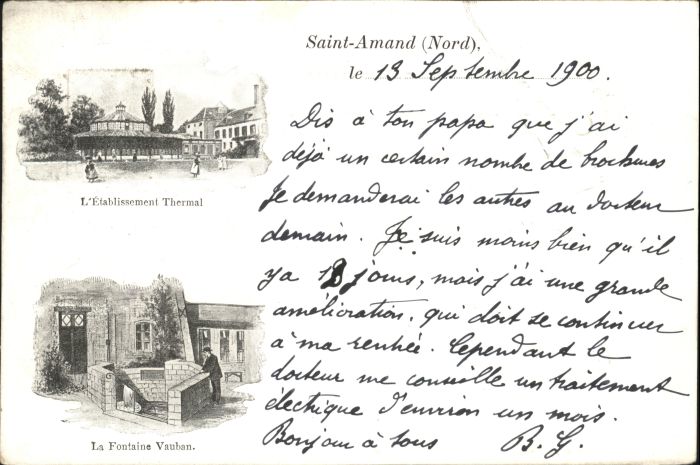 Saint-Amand (Nord),
le 13 Septembre 1900.
Dis à ton papa que j'ai
déjà un certain nombre de brochures
Je demanderai les autres au docteur
demain. Je suis moins bien qu'il
y a 8 jours, mais j'ai une grande
amélioration, qui doit se continuer
à ma rentrée. Cependant le
docteur me conseille un traitement
électrique d'environ un mois.
Bonjour à tous B. G.
L'Établissement Thermal
La Fontaine Vauban.